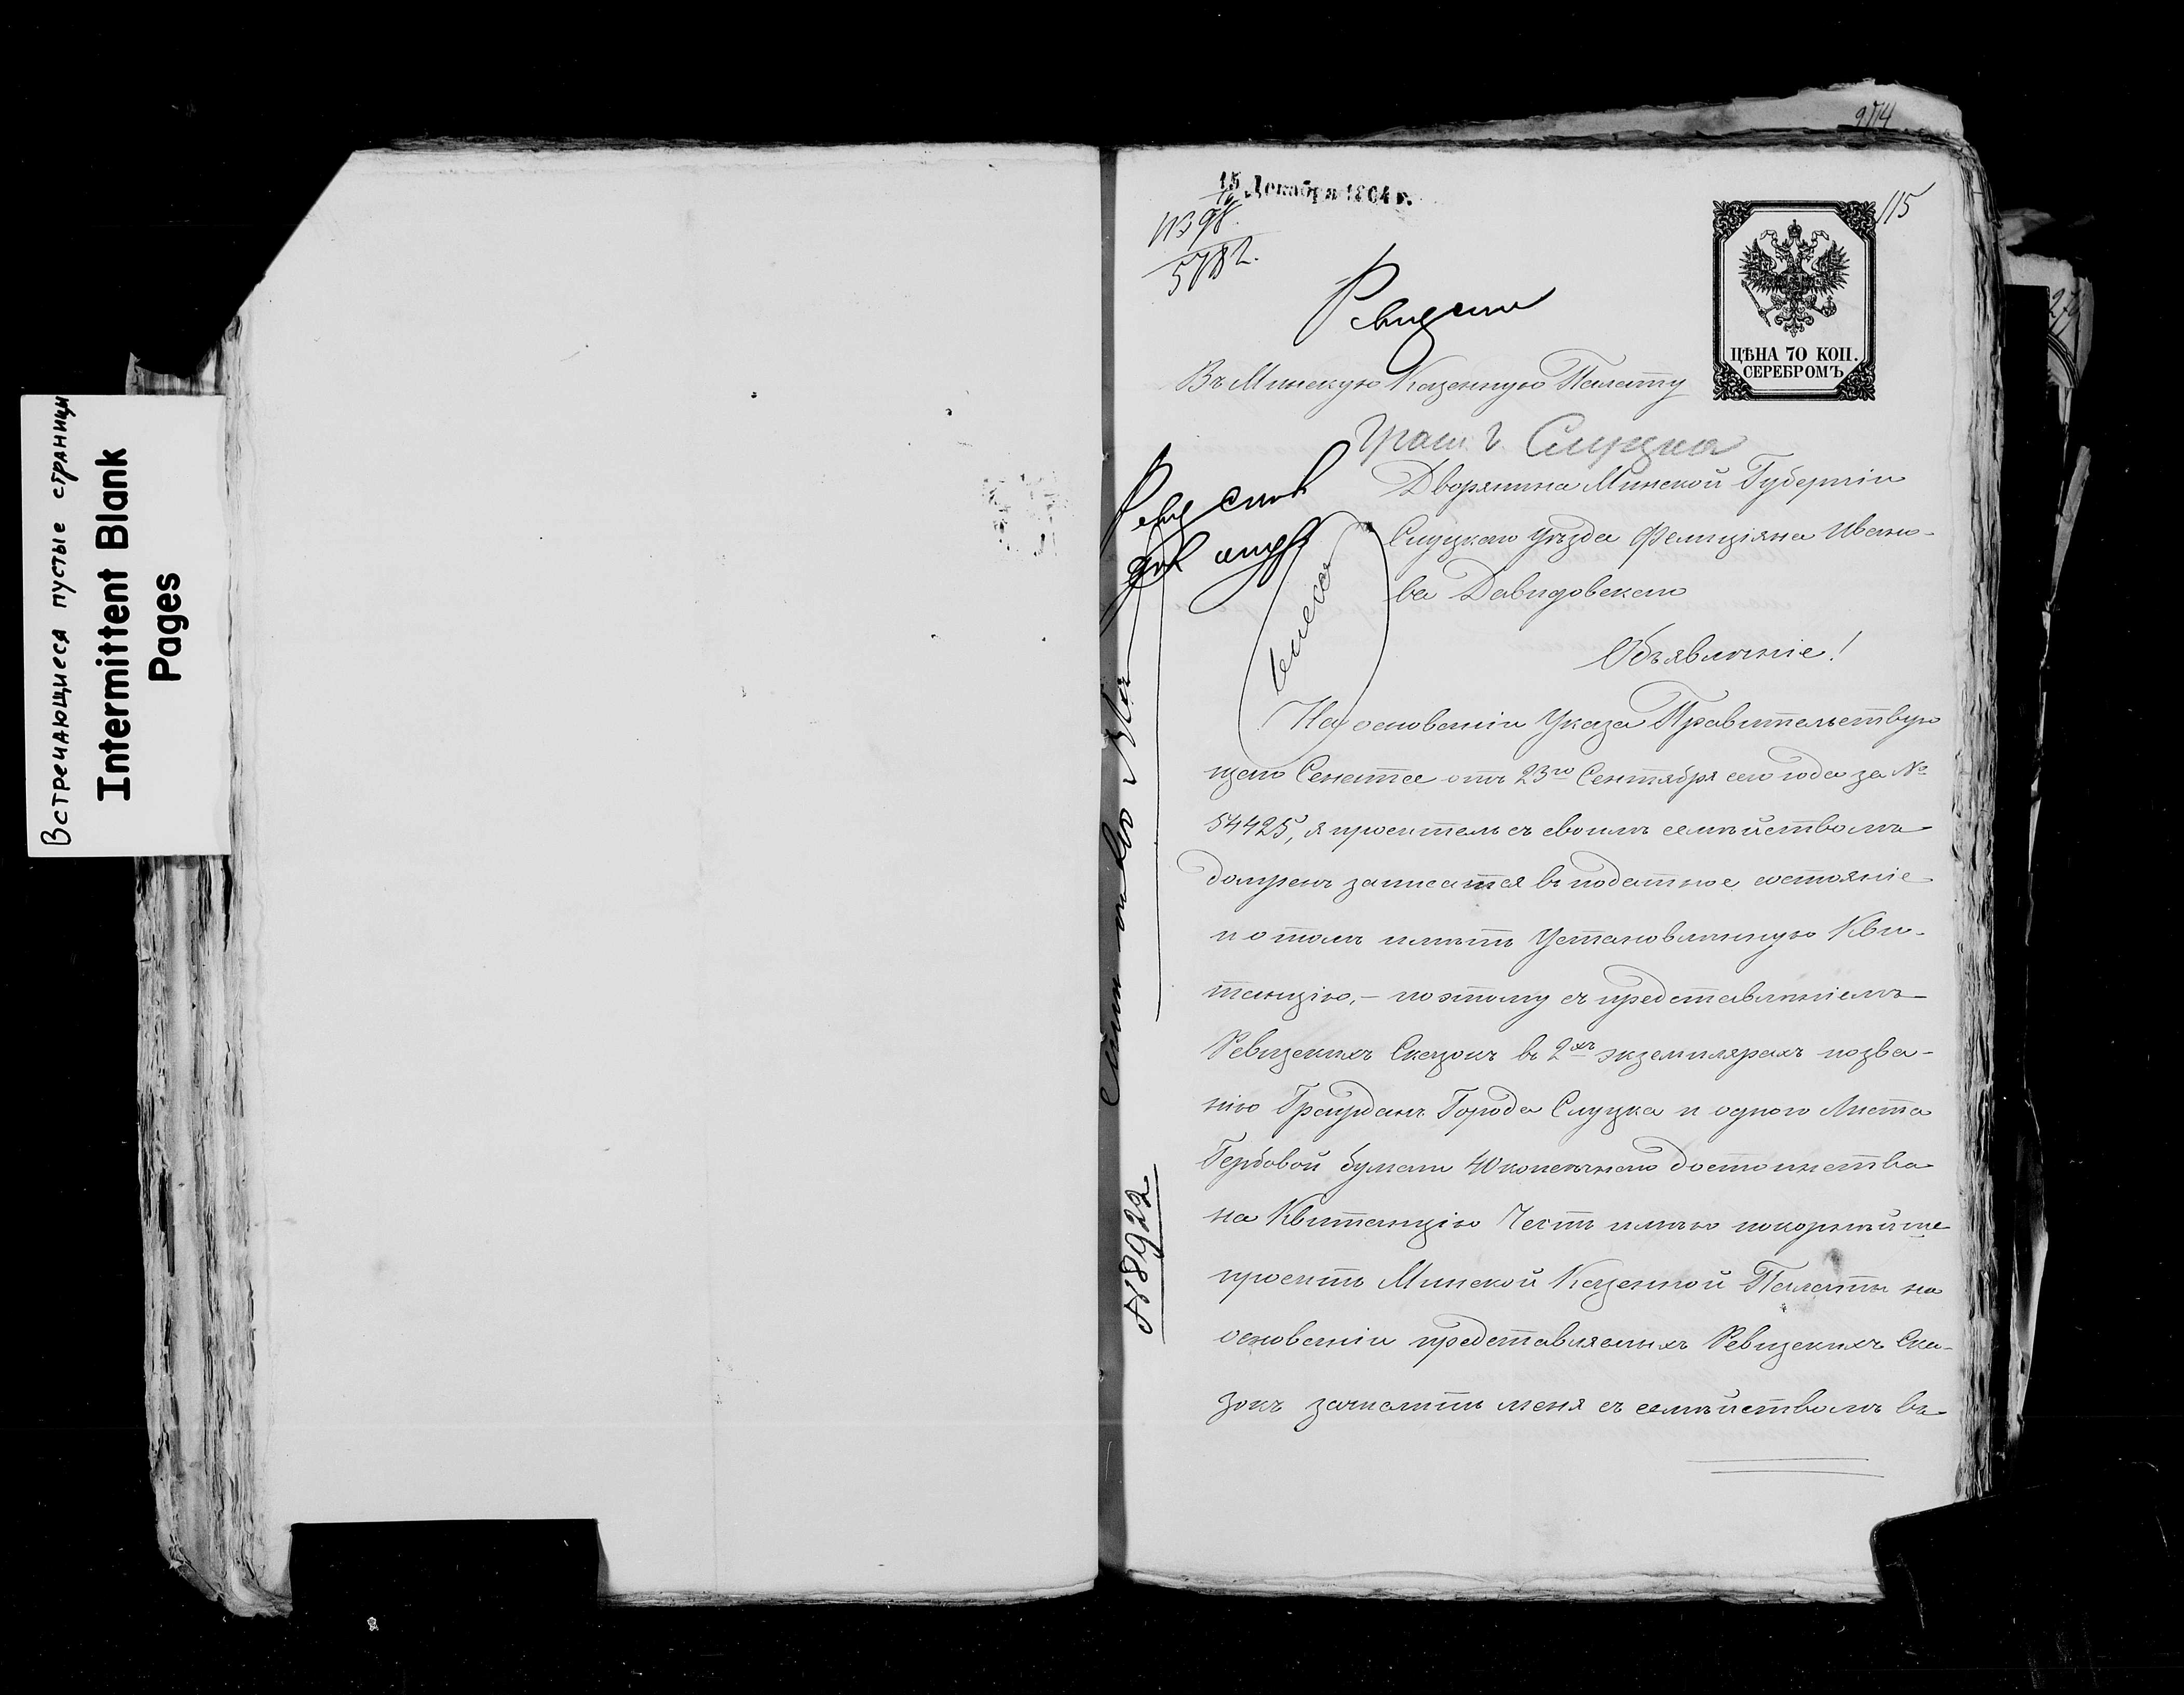 Встречающиеся пустые страницы
Intermittent Blank
Pages
274
115
15 Декабря 1864 г.
11398
5782.
ЦѢНА 70 КОП.
СЕРЕБРОМЪ
Въ Минскую Казенную Палату
Граж. г. Слуцка
Дворянина Минской Губерніи
Слуцкаго Уѣзда Фелиціяна Ивано-
ва Давидовскаго
Объявленіе!
На основаніи Указа Правительствую
щаго Сената отъ 23го Сентября сего года за №
54425, я проситель съ своимъ семѣйствомъ
долженъ записатся въ податное состояніе
и о томъ имѣть Установленную Кви-
танцію, – поэтому съ представленіемъ
Ревизскихъ Сказокъ въ 2хъ экземплярахъ по зва-
нію Гражданъ Города Слуцка и одного Листа
Гербовой бумаги 40 копеечнаго достоинства
на Квитанцію Честь имѣю покорнѣйше
просить Минской Казенной Палаты на
основаніи представляемыхъ Ревизскихъ Ска-
зокъ зачислить меня съ семѣйствомъ въ
№ 8922